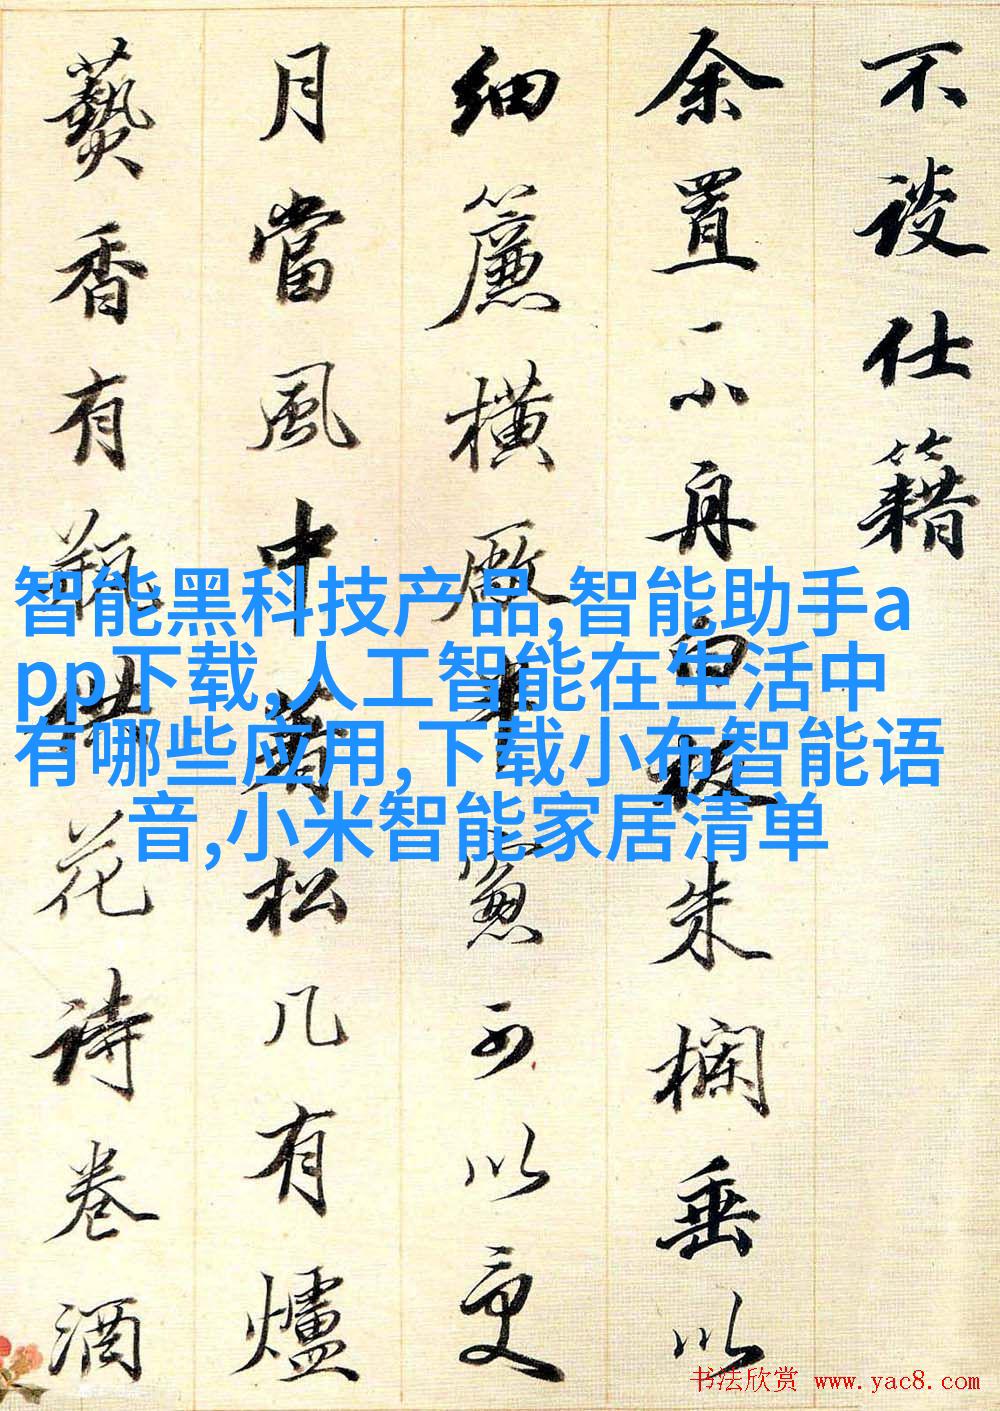 不談仕籍
余置一小舟白板朱欄垂以
細簾橫厰半窻可以更
月當風中着松几有爐
爇香有瓶供花詩卷酒
智能黑科技产品,智能助手a
pp下载,人工智能在生活中
有哪些应用,下载小布智能语
音,小米智能家居清单
书法欣赏 www.yac8.com